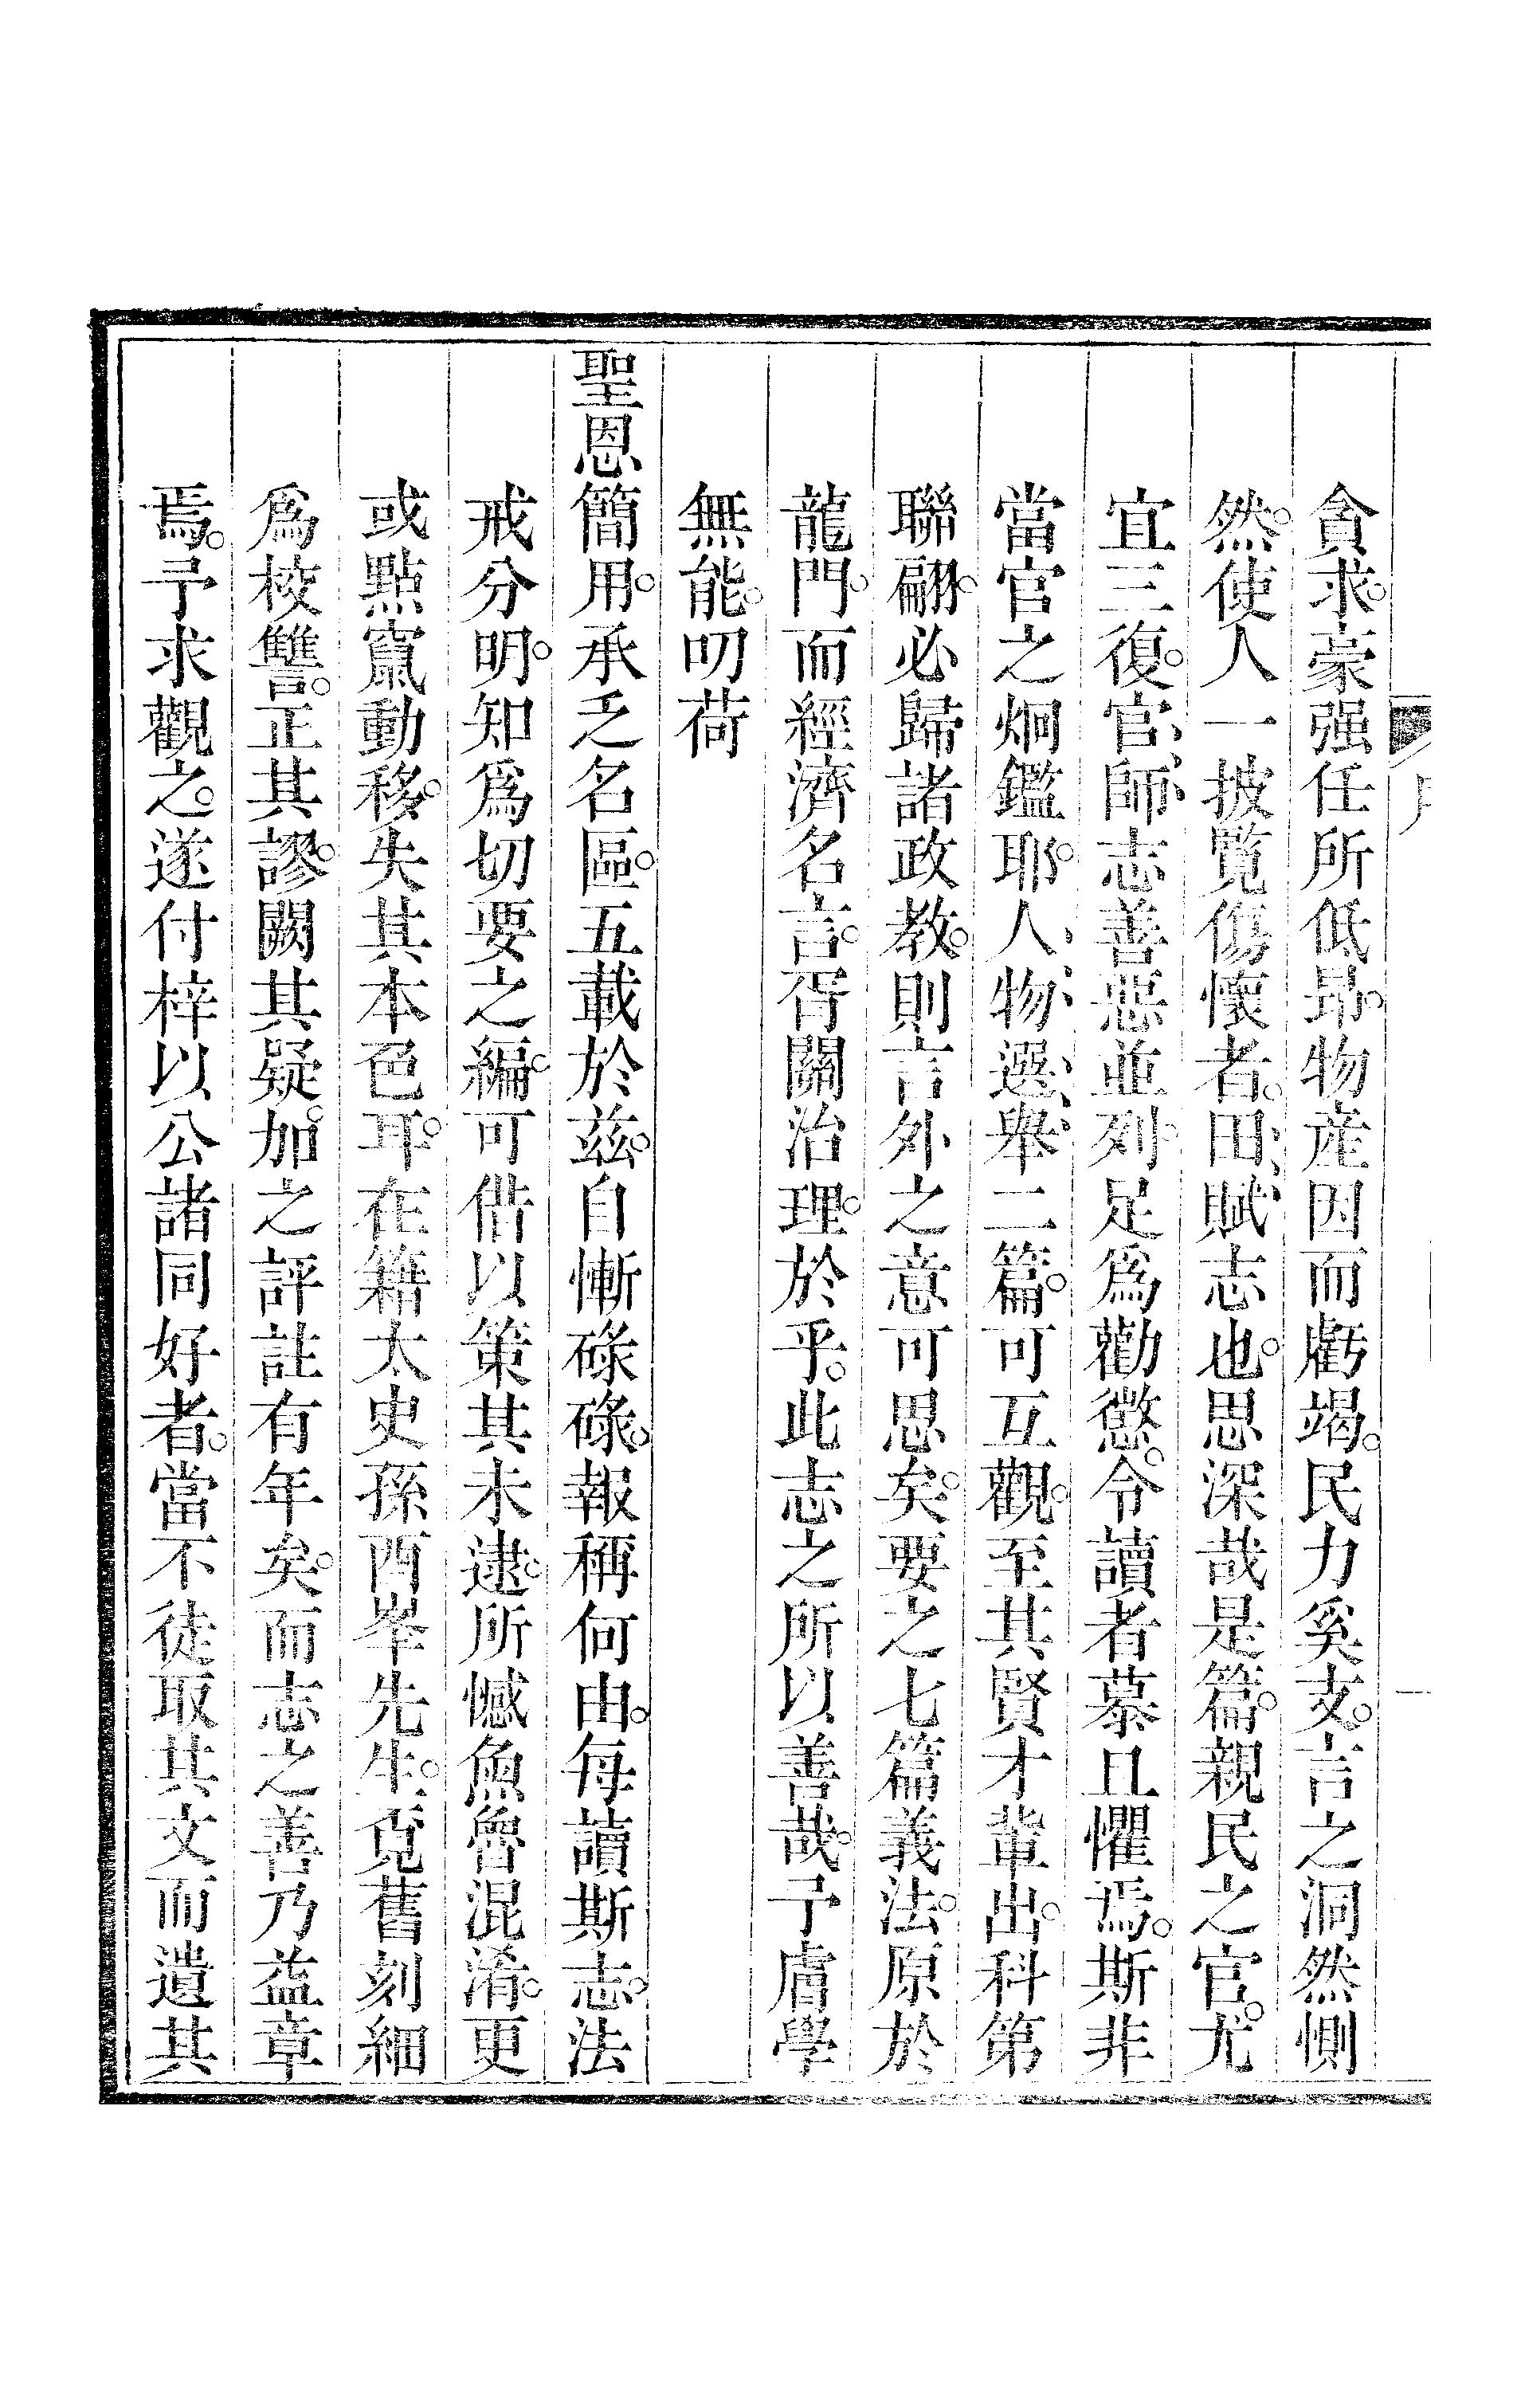 貪求。豪强任所低昻。物産因而虧竭。民力奚支。言之洞然惻
然。使人一披覽傷懷者。田、賦、志也。思深哉是篇。親民之官。尤
宜三復。官、師、志善惡並列。足爲勸懲。令讀者慕且懼焉。斯非
當官之炯鑑耶。人、物、選、舉、二篇。可互觀。至其賢才輩出。科第
聯翩。必歸諸政教。則言外之意可思矣。要之七篇義法。原於
龍門。而經濟名言。胥關治理。於乎。此志之所以善哉。予膚學
無能。叨荷
聖恩簡用。承乏名區。五載於兹。自慚碌碌。報稱何由。每讀斯志。法
戒分明。知爲切要之編。可借以策其未逮。所憾魚魯混淆。更
或點竄動移。失其本色耳。在籍太史孫酉峯先生。覓舊刻細
爲校讐。正其謬。闕其疑。加之評註有年矣。而志之善乃益章
焉。予求觀之。遂付梓以公諸同好者。當不徒取其文而遺其